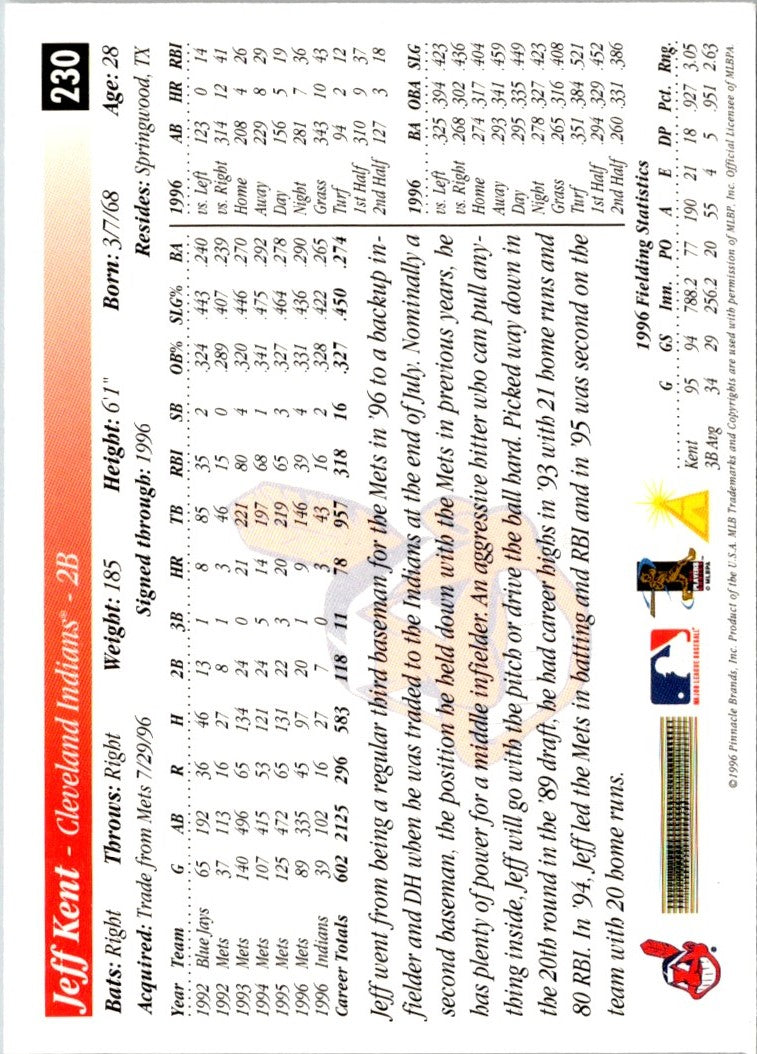 Jeff Kent - Cleveland Indians® - 2B 230
Bats: Right Throws: Right Weight: 185 Height: 6'1" Born: 3/7/68 Age: 28
Acquired: Trade from Mets 7/29/96 Signed through: 1996 Resides: Springwood, TX
Year Team G AB R H 2B 3B HR TB RBI SB OB% SLG% BA
1992 Blue Jays 65 192 36 46 13 1 8 85 35 2 .324 .443 .240
1992 Mets 37 113 16 27 8 1 3 46 15 0 .289 .407 .239
1993 Mets 140 496 65 134 24 0 21 221 80 4 .320 .446 .270
1994 Mets 107 415 53 121 24 5 14 197 68 1 .341 .475 .292
1995 Mets 125 472 65 131 22 3 20 219 65 3 .327 .464 .278
1996 Mets 89 335 45 97 20 1 9 146 39 4 .331 .436 .290
1996 Indians 39 102 16 27 7 0 3 43 16 2 .328 .422 .265
Career Totals 602 2125 296 583 118 11 78 957 318 16 .327 .450 .274
Jeff went from being a regular third baseman for the Mets in '96 to a backup in-
fielder and DH when he was traded to the Indians at the end of July. Nominally a
second baseman, the position he held down with the Mets in previous years, he
has plenty of power for a middle infielder. An aggressive hitter who can pull any-
thing inside, Jeff will go with the pitch or drive the ball hard. Picked way down in
the 20th round in the '89 draft, he had career highs in '93 with 21 home runs and
80 RBI. In '94, Jeff led the Mets in batting and RBI and in '95 was second on the
team with 20 home runs.
1996 AB HR RBI
vs. Left 123 0 14
vs. Right 314 12 41
Home 208 4 26
Away 229 8 29
Day 156 5 19
Night 281 7 36
Grass 343 10 43
Turf 94 2 12
1st Half 310 9 37
2nd Half 127 3 18
1996 BA OBA SLG
vs. Left .325 .394 .423
vs. Right .268 .302 .436
Home .274 .317 .404
Away .293 .341 .459
Day .295 .335 .449
Night .278 .327 .423
Grass .265 .316 .408
Turf .351 .384 .521
1st Half .294 .329 .452
2nd Half .260 .331 .386
1996 Fielding Statistics
G GS Inn. PO A E DP Pct. Rng.
Kent 95 94 788.2 77 190 21 18 .927 3.05
3B Avg 34 29 256.2 20 55 4 5 .951 2.63
MAJOR LEAGUE BASEBALL
PLAYERS
© MLBPA
©1996 Pinnacle Brands, Inc. Product of the U.S.A. MLB Trademarks and Copyrights are used with permission of MLBP, Inc. Official Licensee of MLBPA.